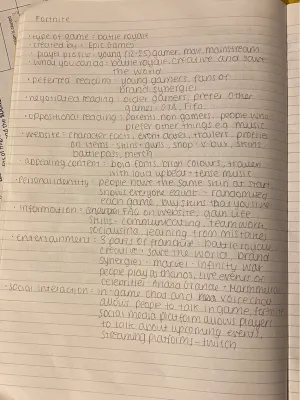 Fortnite
· type of game = battle royale
· created by = Epic Games
· player profile = young (12-25) gamer, male, mainstream
· what you can do = battle royale, creative and save
the world
· preferred reading = young gamers, fans of
brand synergies
· negotiated reading = older gamers, prefer other
games - GTA, Fifa
· oppositional reading = parents, non gamers, people who
prefer other things e.g. music
· website = character facts, exam dates, trailers, profile
on items - skins + guns, shop v-bucks, skins,
battlepass, merch
· appealing content = bold fonts, bright colours, trailers
with loud upbeat + tense music
· personal identity = people have the same skin at start
shows everyone equal - randomised
each game, buy skins that you like
· information = FAQ on website, gain life
skills - communicating, teamwork,
socialising, learning from mistakes
· entertainment = 3 parts of franchise - battle royale,
creative + save the world, brand
synergies - marvel - infinity war
people play as thanos, live events of
celebrities - Ariana Grande + Marshmello
· social interaction = in-game chat and voice chat
allows people to talk in game, fortnite
social media platform allows players
to talk about upcoming events,
streaming platforms - twitch